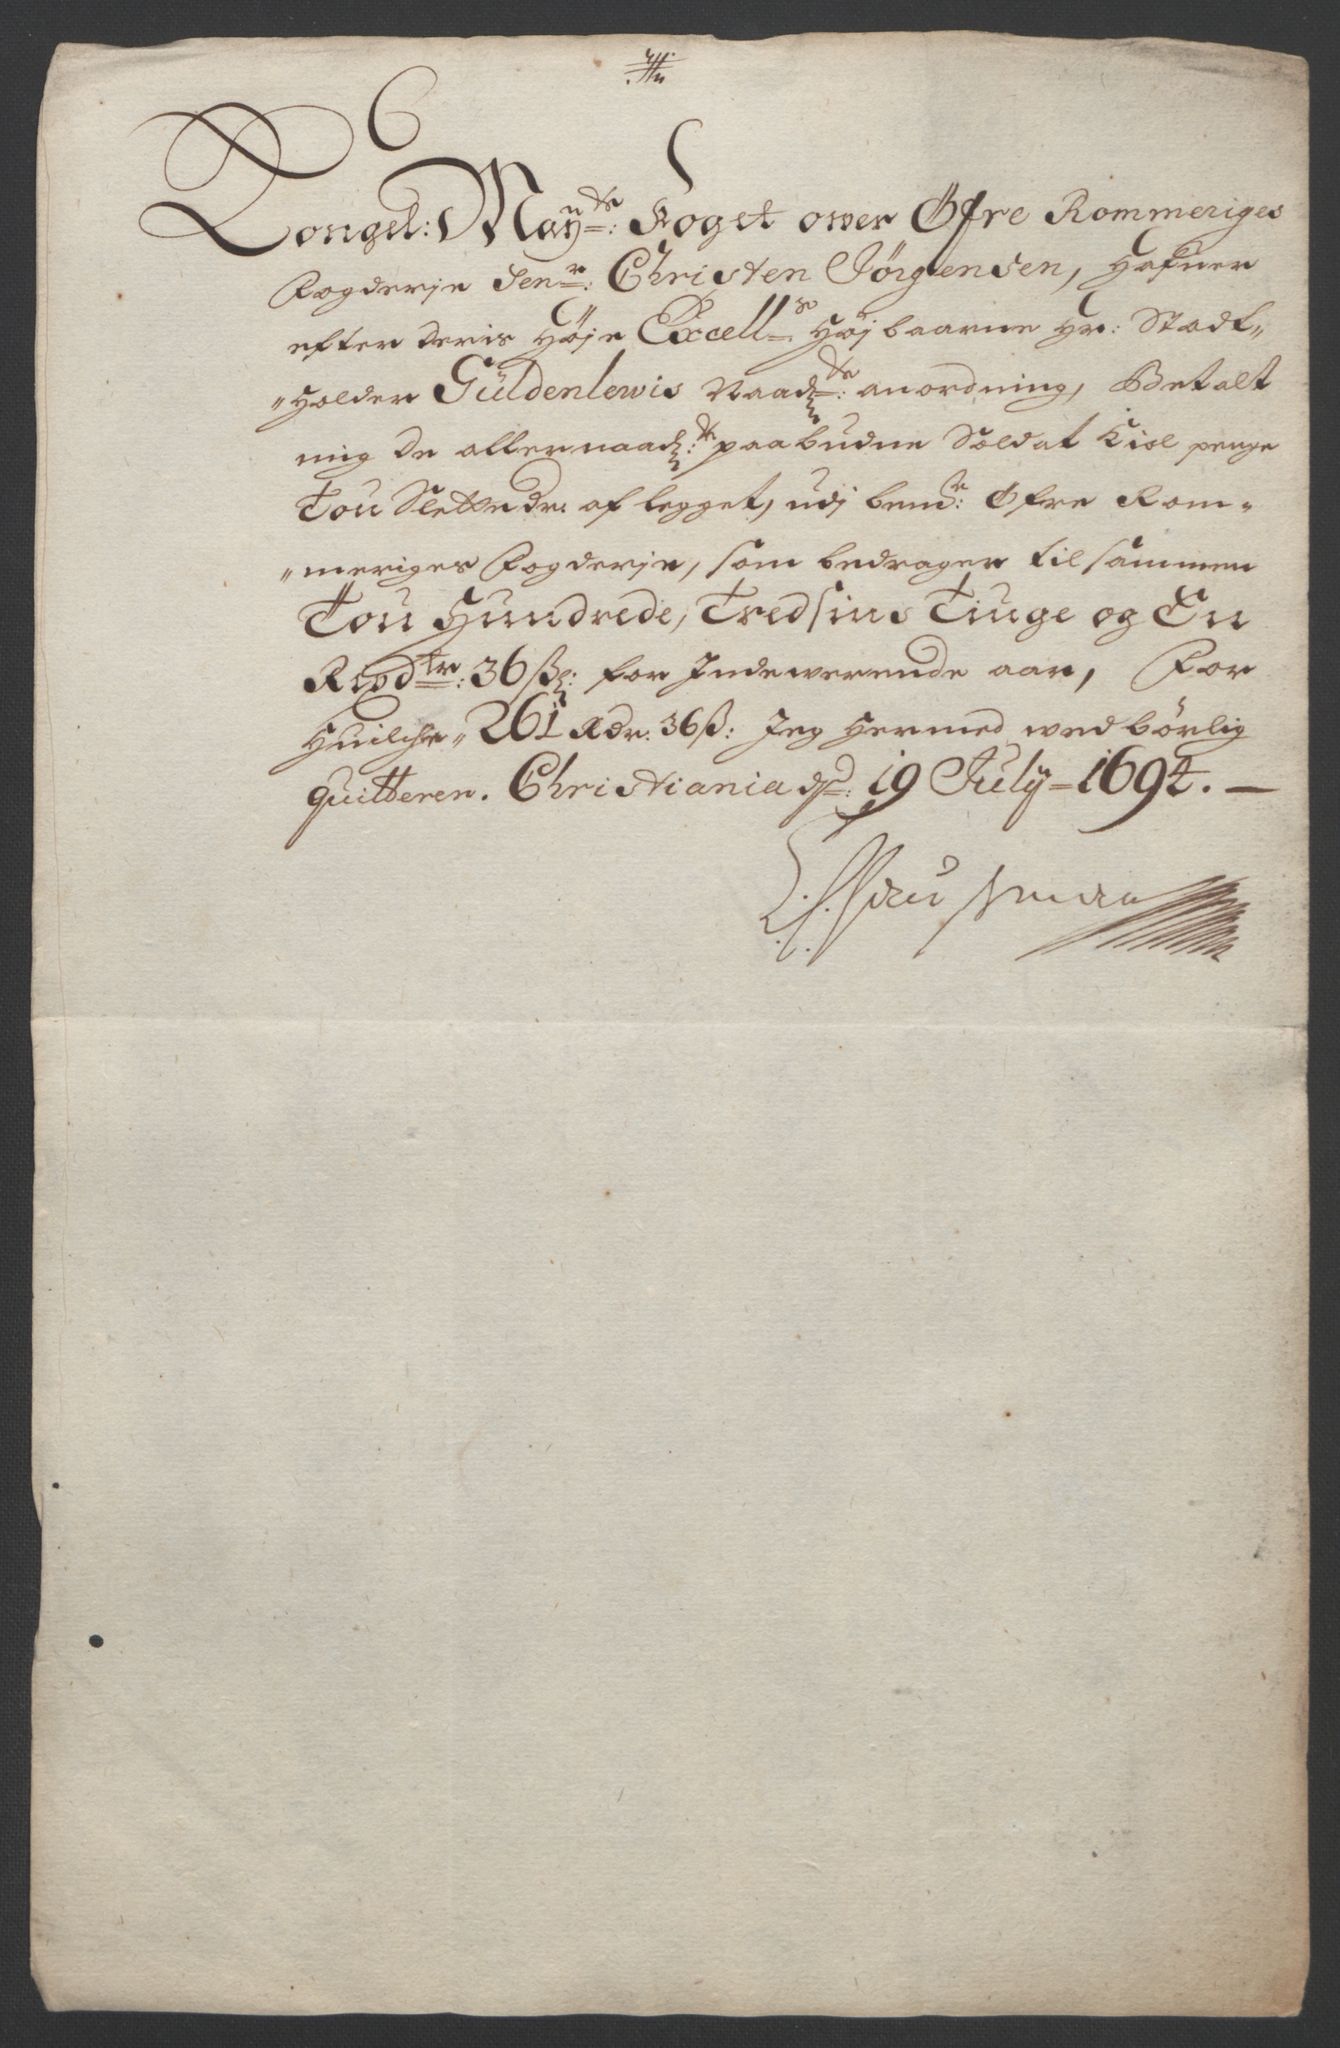 Kongel: May:ts Foget ower Øfre Rommeriges
Fogderje Sen:r Christen Jörgensen, hafuer
efter deris Høje Excell:ce Højbaarne Hr: Stadt-
holder Güldenlewis Naad: anordning, Betalt
mig de allernaad: paabudne Soldat Kiol penge
Tou Slettedr: af legget, udj bem:te Øfre Rom-
meriges Fogderje, som bedrager tilsammen
Tou Hundrede, Tredsins Tiuge og En
Rixdr: 36 ß: for Indewerende aar, For
Huilche 261 Rdr. 36 ß: Jeg hermed wed börlig
quitterer. Christiania d: 19 July 1694.